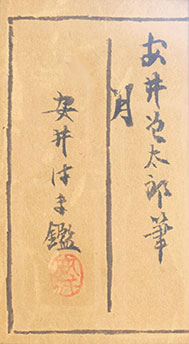 安井曾太郎筆
月
安井はま鑑